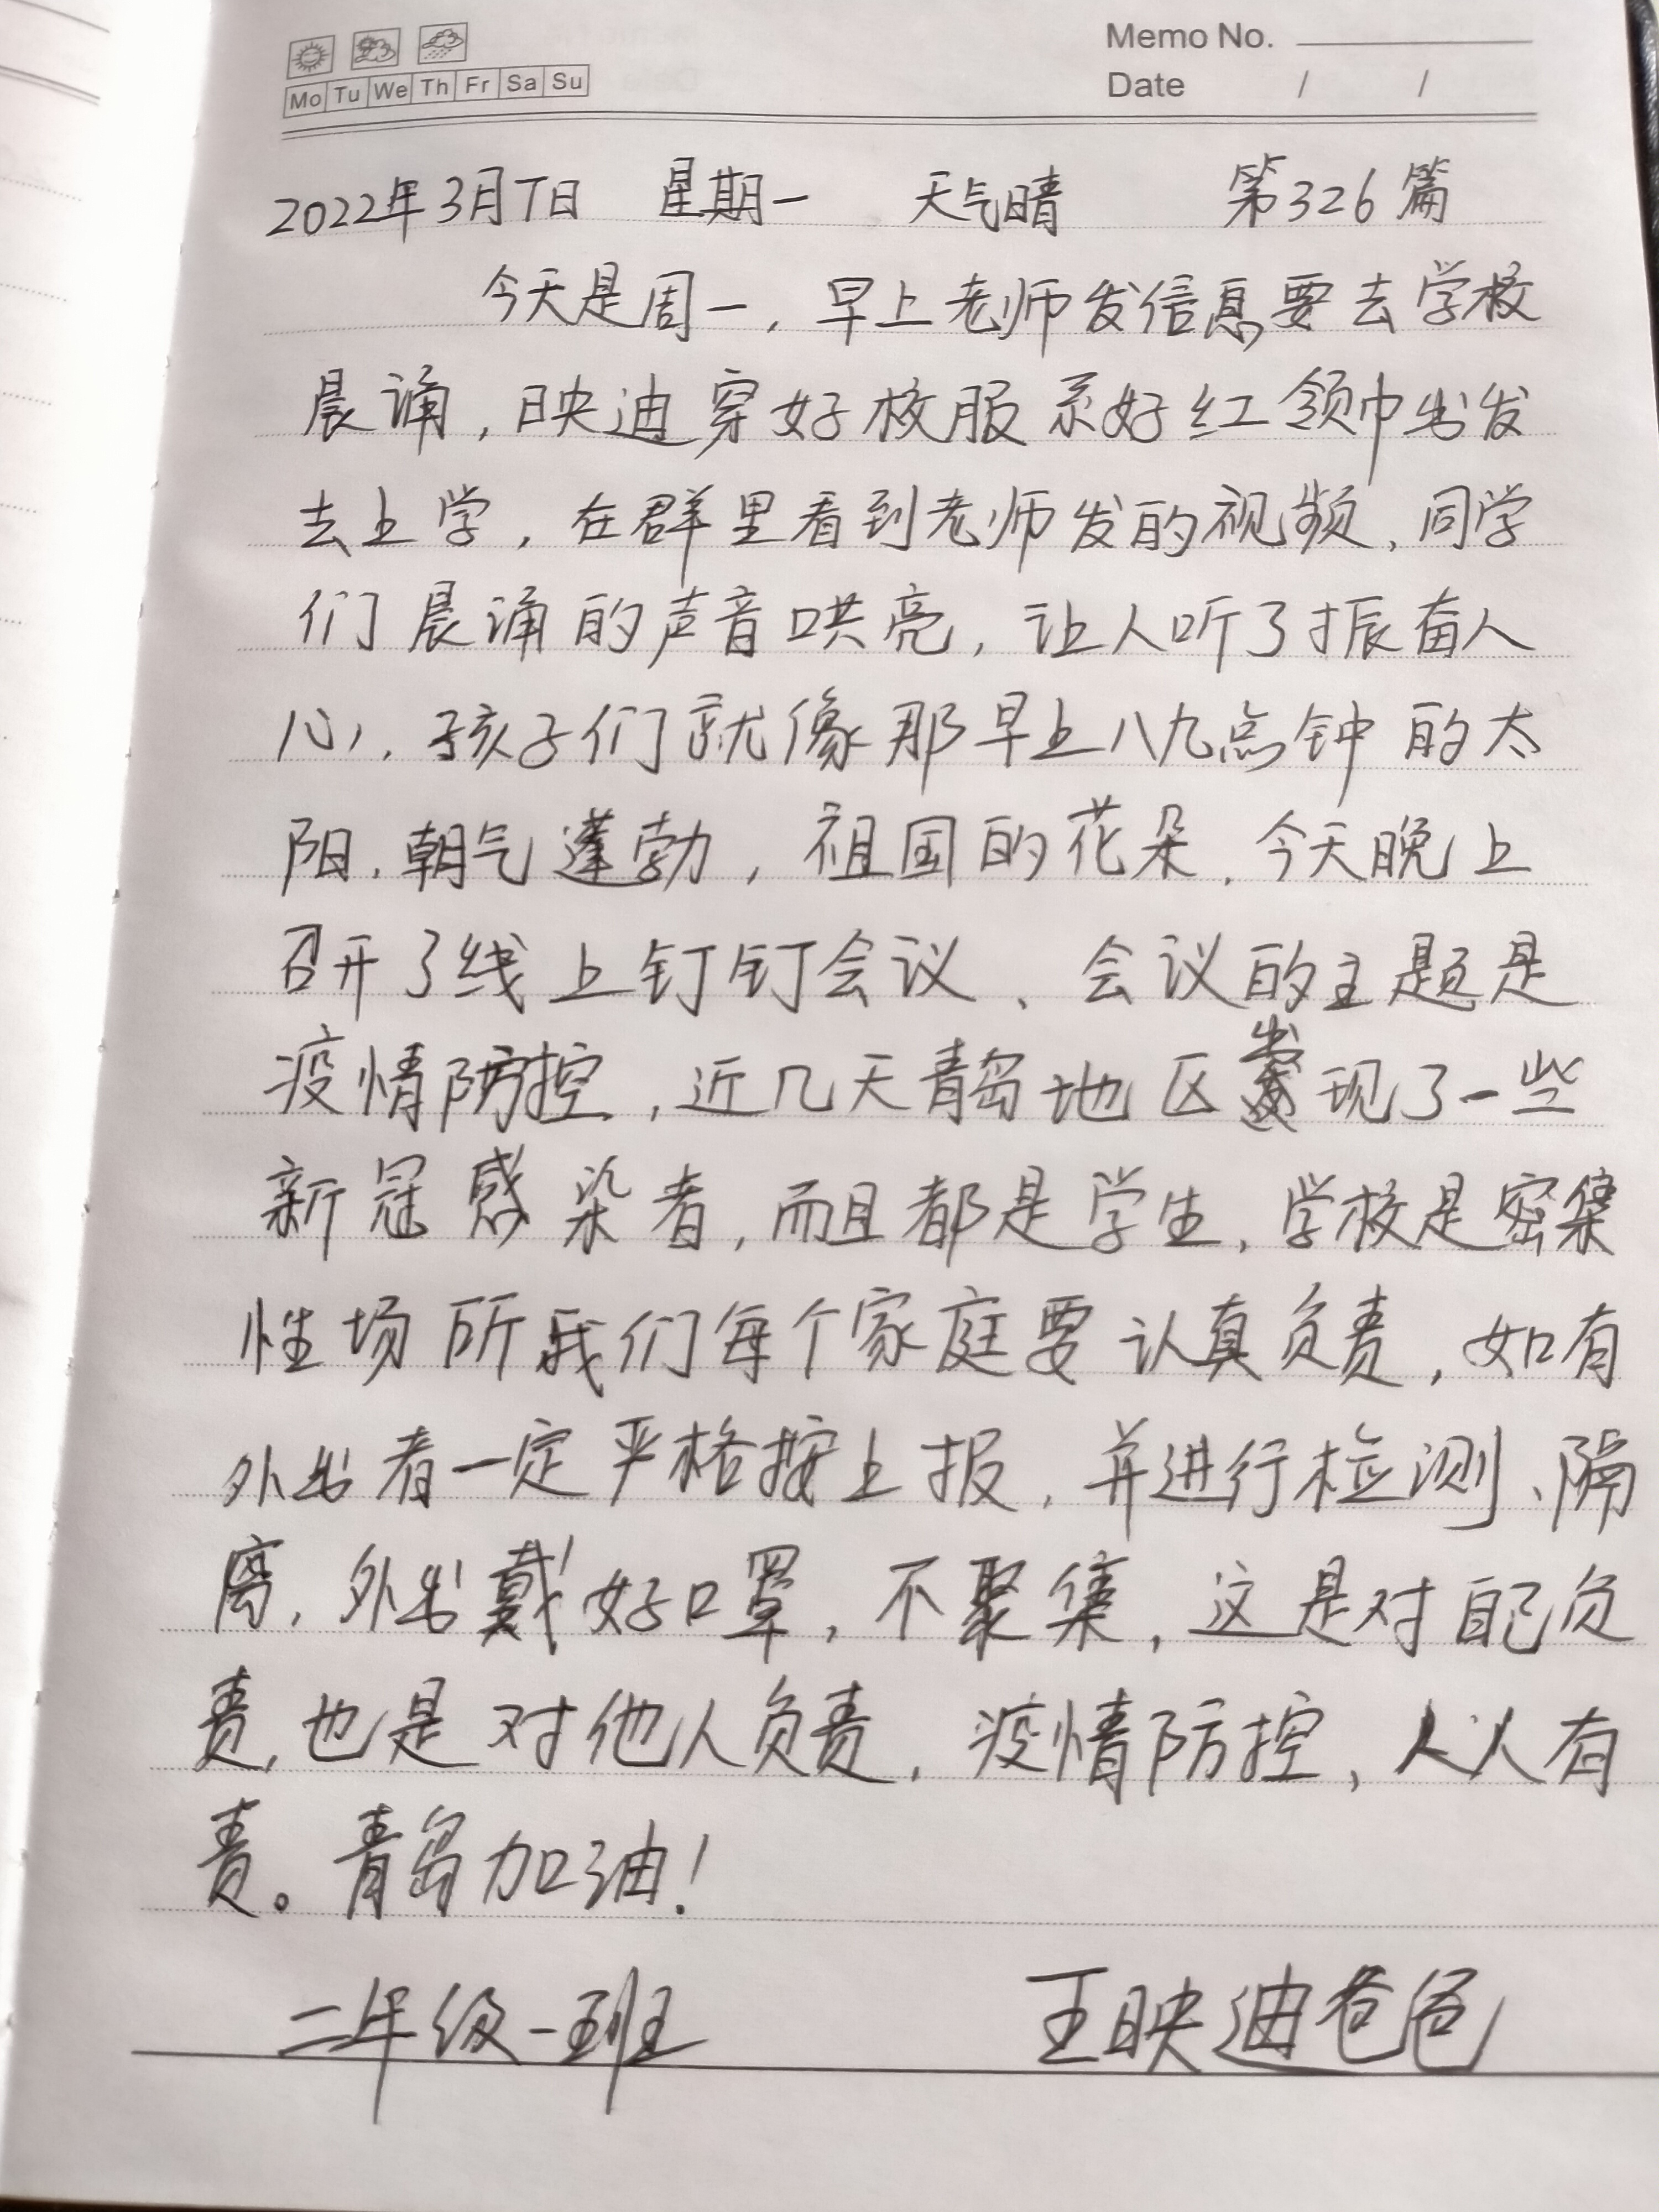 Memo No.
Mo Tu We Th Fr Sa Su
Date / /
2022年3月7日 星期一 天气晴 第326篇
今天是周一,早上老师发信息要去学校
晨诵,映迪穿好校服系好红领巾出发
去上学,在群里看到老师发的视频,同学
们晨诵的声音哄亮,让人听了振奋人
心,孩子们就像那早上八九点钟的太
阳,朝气蓬勃,祖国的花朵,今天晚上
召开了线上钉钉会议、会议的主题是
疫情防控,近几天青岛地区发现了一些
新冠感染者,而且都是学生,学校是密集
性场所我们每个家庭要认真负责,如有
外出者一定严格按上报,并进行检测、隔
离,外出戴好口罩,不聚集,这是对自己负
责,也是对他人负责,疫情防控,人人有
责。青岛加油!
二年级一班 王映迪爸爸